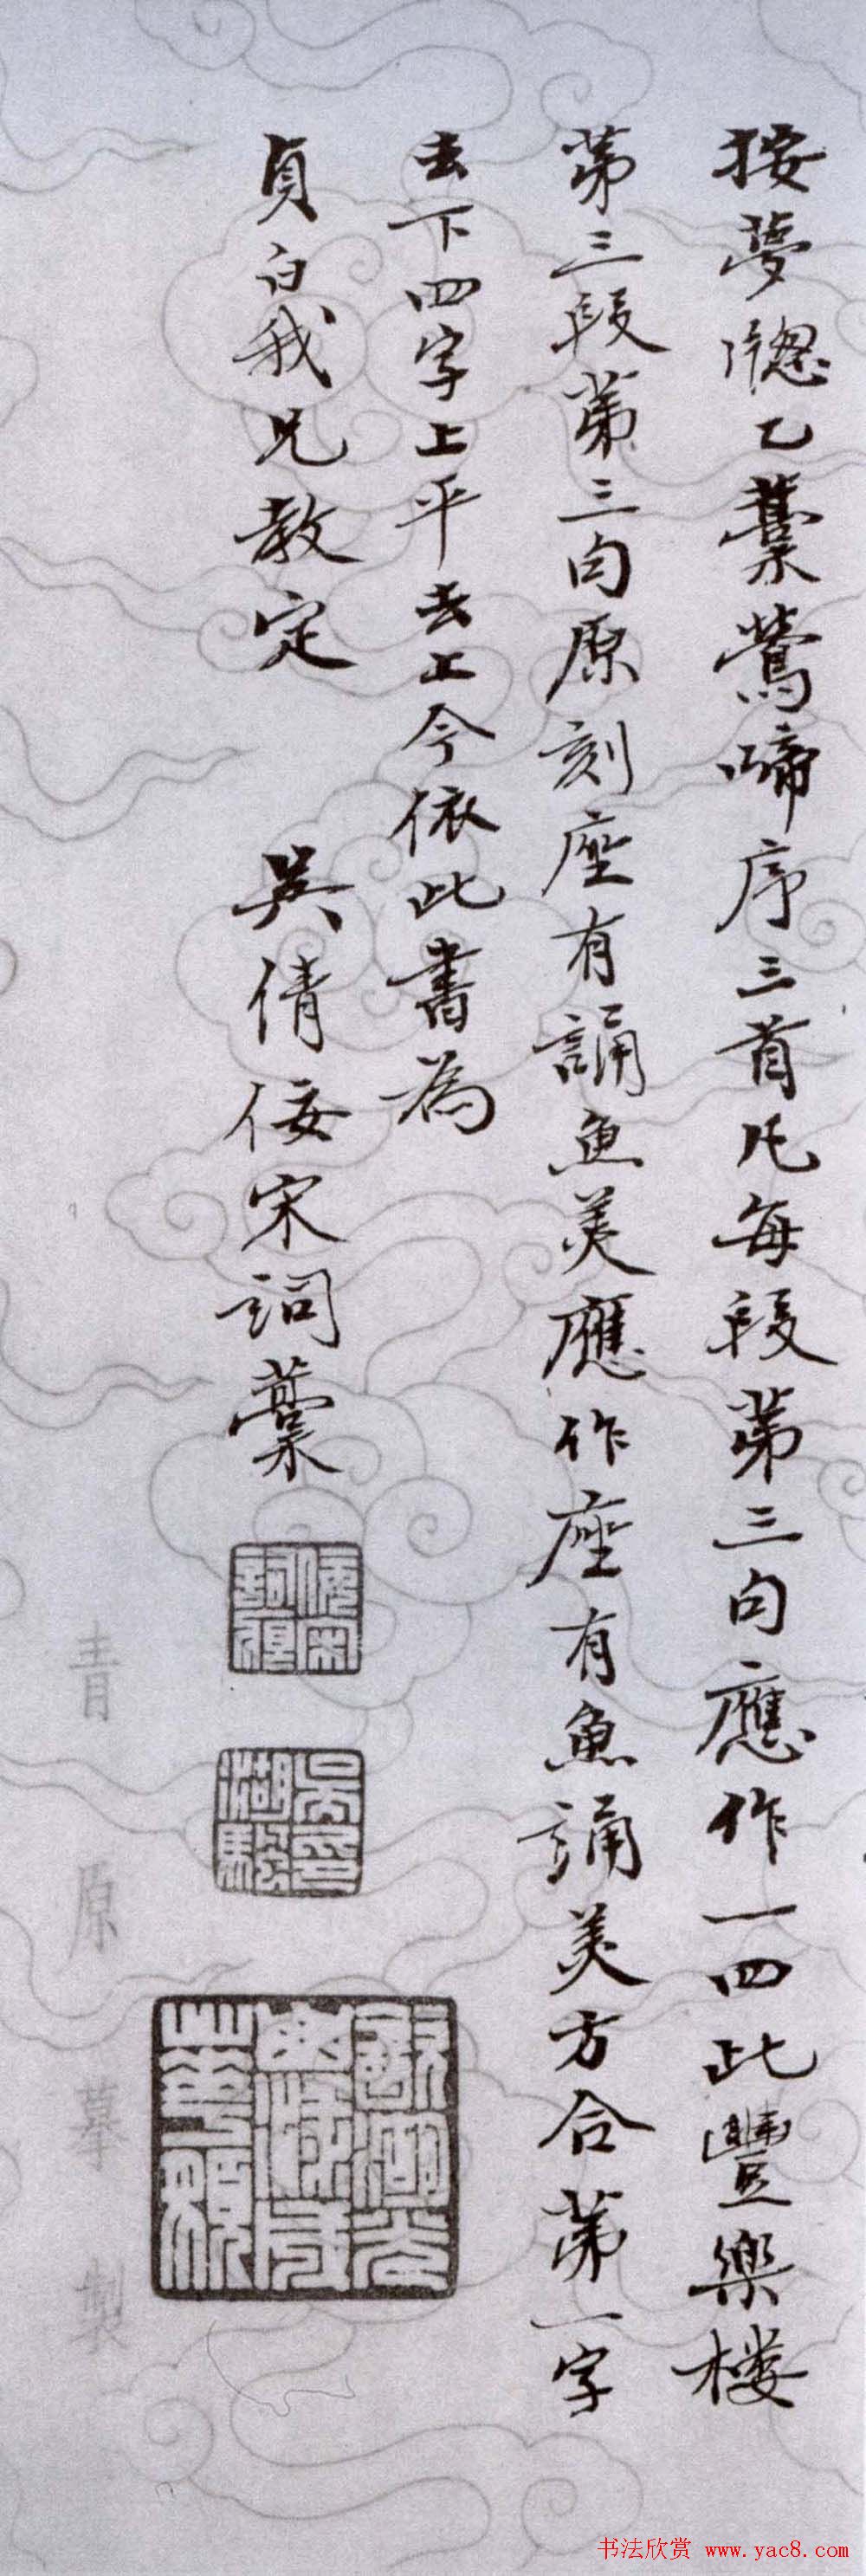 按夢牕乙藁鶯啼序三首凡每段第三句應作一四此豐樂樓
第三段第三句原刻座有誦魚美應作座有魚誦美方合第一字
去下四字上平去上今依此書為
貞白我兄教定
吳倩佞宋詞藁
青原摹製
书法欣赏 www.yac8.com